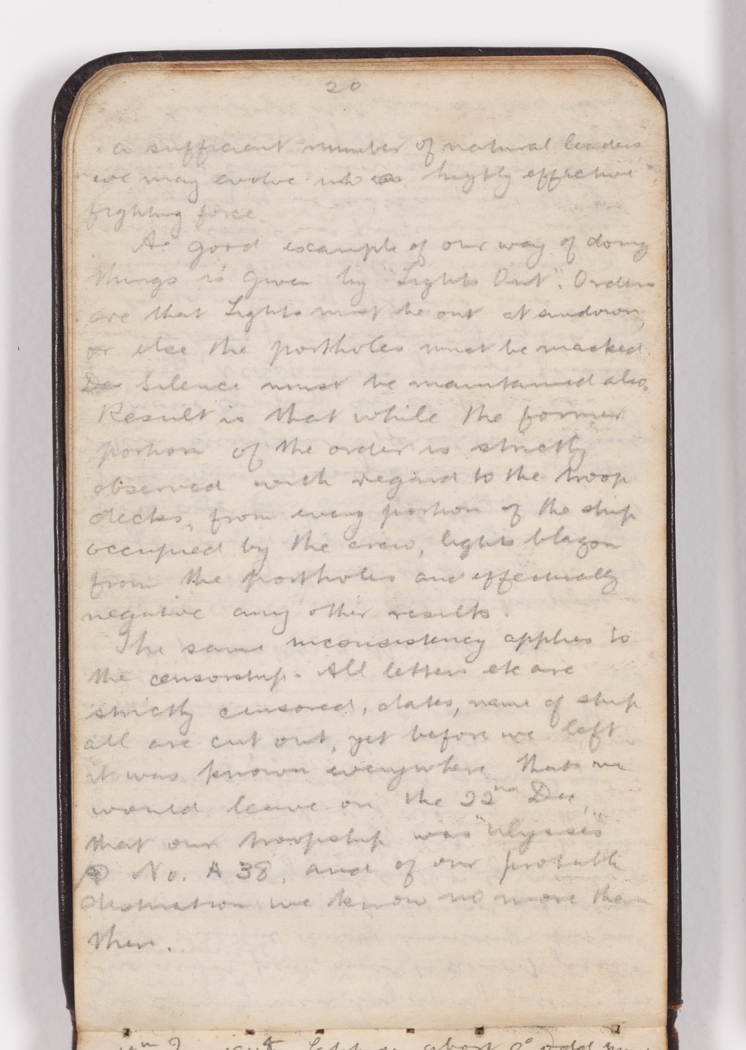 20
a sufficient number of natural leaders
we may evolve into a highly effective
fighting force.
A good example of our way of doing
things is given by "Lights Out". Orders
are that Lights must be out at sundown,
or else the portholes must be masked.
Silence must be maintained also.
Result is that while the former
portion of the order is strictly
observed with regard to the troop
decks, from every portion of the ship
occupied by the crew, lights blazon
from the portholes and effectually
negative any other results.
The same inconsistency applies to
the censorship. All letters etc are
strictly censored, dates, name of ship
all are cut out, yet before we left
it was known everywhere that we
would leave on the 22nd Dec,
that our troopship was "Ulysses"
No. A 38, and of our probable
destination we know no more than
then.
about odd